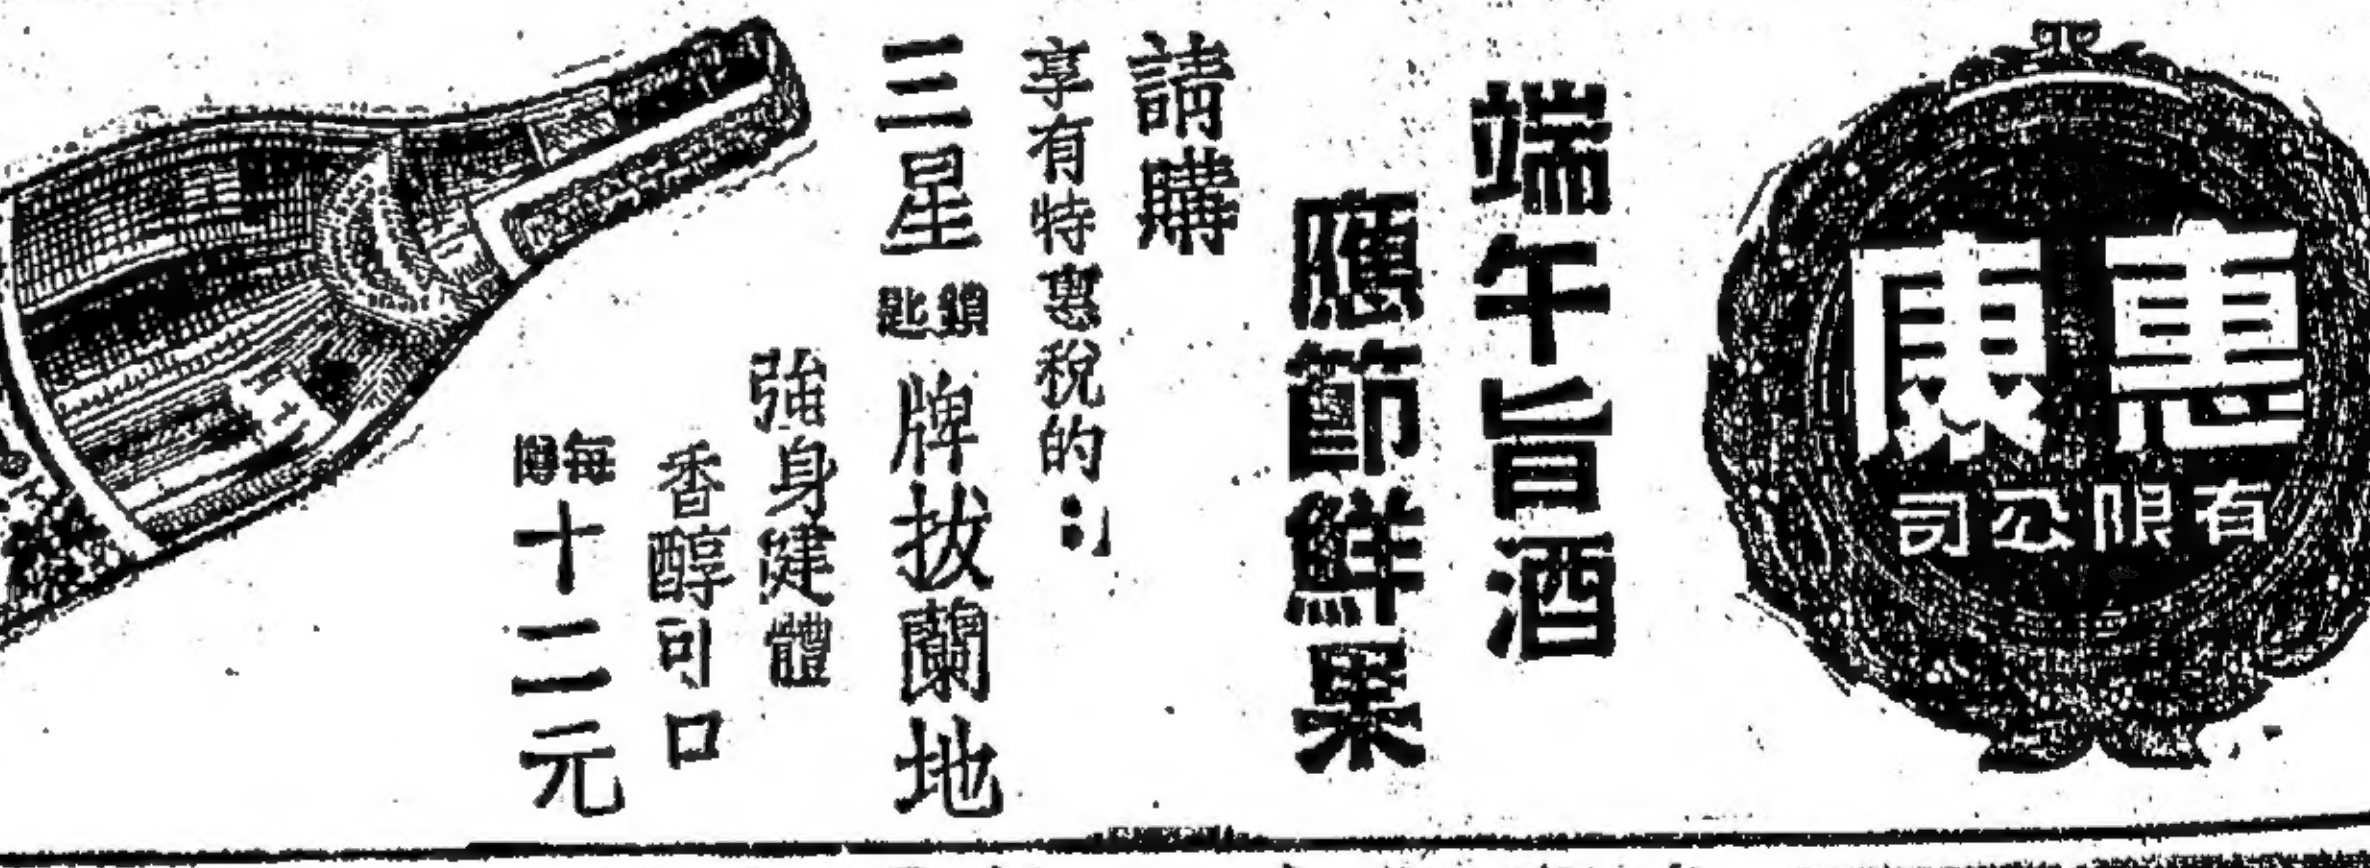 惠康
有限公司
端午旨酒
應節鮮果
請購
享有特惠稅的：
三星鎖匙牌拔蘭地
強身健體
香醇可口
每樽十二元